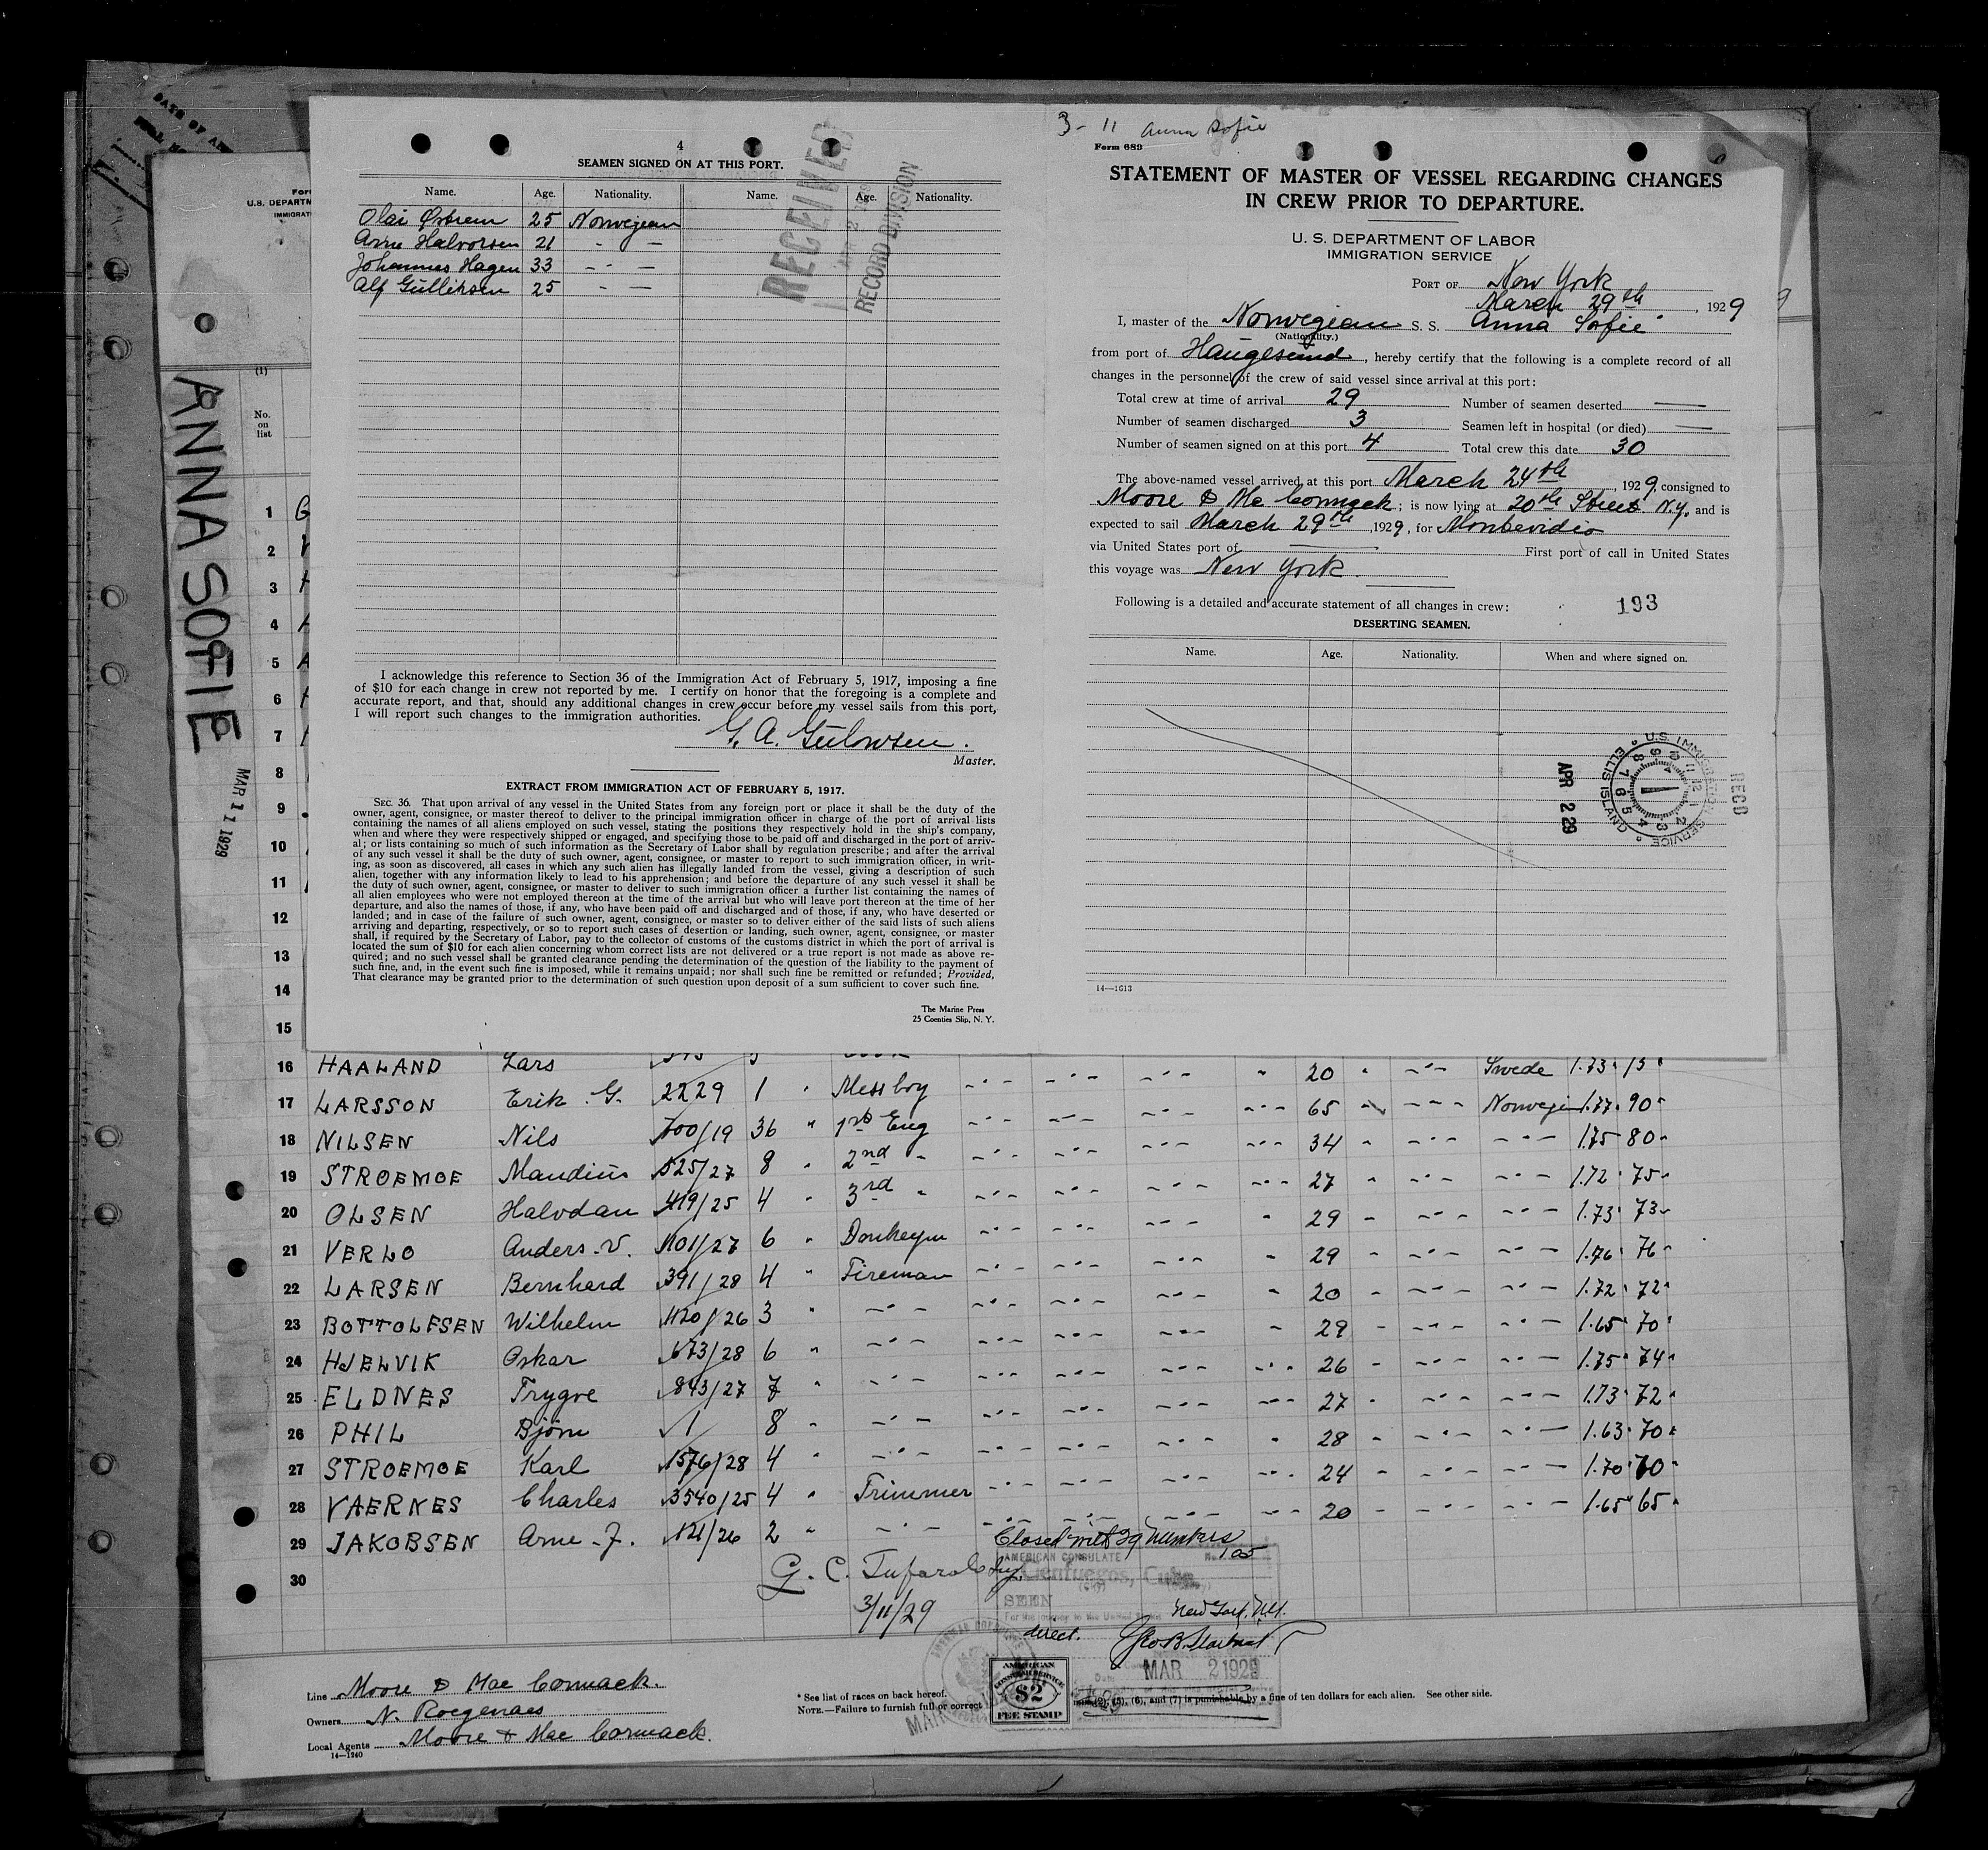 4
SEAMEN SIGNED ON AT THIS PORT.
Name. Age. Nationality. Name. Age. Nationality.
Olai Østrem 25 Norwegian
Arne Halvorsen 21 - —
Johannes Hagen 33 - - —
Alf Gulliksen 25 - —
RECEIVED
RECORD DIVISION
I acknowledge this reference to Section 36 of the Immigration Act of February 5, 1917, imposing a fine
of $10 for each change in crew not reported by me. I certify on honor that the foregoing is a complete and
accurate report, and that, should any additional changes in crew occur before my vessel sails from this port,
I will report such changes to the immigration authorities.
G. A. Gulowsen.
Master.
EXTRACT FROM IMMIGRATION ACT OF FEBRUARY 5, 1917.
SEC. 36. That upon arrival of any vessel in the United States from any foreign port or place it shall be the duty of the
owner, agent, consignee, or master thereof to deliver to the principal immigration officer in charge of the port of arrival lists
containing the names of all aliens employed on such vessel, stating the positions they respectively hold in the ship's company,
when and where they were respectively shipped or engaged, and specifying those to be paid off and discharged in the port of arriv-
al; or lists containing so much of such information as the Secretary of Labor shall by regulation prescribe; and after the arrival
of any such vessel it shall be the duty of such owner, agent, consignee, or master to report to such immigration officer, in writ-
ing, as soon as discovered, all cases in which any such alien has illegally landed from the vessel, giving a description of such
alien, together with any information likely to lead to his apprehension; and before the departure of any such vessel it shall be
the duty of such owner, agent, consignee, or master to deliver to such immigration officer a further list containing the names of
all alien employees who were not employed thereon at the time of the arrival but who will leave port thereon at the time of her
departure, and also the names of those, if any, who have been paid off and discharged and of those, if any, who have deserted or
landed; and in case of the failure of such owner, agent, consignee, or master so to deliver either of the said lists of such aliens
arriving and departing, respectively, or so to report such cases of desertion or landing, such owner, agent, consignee, or master
shall, if required by the Secretary of Labor, pay to the collector of customs of the customs district in which the port of arrival is
located the sum of $10 for each alien concerning whom correct lists are not delivered or a true report is not made as above re-
quired; and no such vessel shall be granted clearance pending the determination of the question of the liability to the payment of
such fine, and, in the event such fine is imposed, while it remains unpaid; nor shall such fine be remitted or refunded; Provided,
That clearance may be granted prior to the determination of such question upon deposit of a sum sufficient to cover such fine.
The Marine Press
25 Coenties Slip, N. Y.
3 - 11 Anna Sofie
Form 689
STATEMENT OF MASTER OF VESSEL REGARDING CHANGES
IN CREW PRIOR TO DEPARTURE.
U. S. DEPARTMENT OF LABOR
IMMIGRATION SERVICE
PORT OF New York
March 29th, 1929
I, master of the Norwegian S. S. Anna Sofie
(Nationality.)
from port of Haugesund, hereby certify that the following is a complete record of all
changes in the personnel of the crew of said vessel since arrival at this port:
Total crew at time of arrival 29 Number of seamen deserted —
Number of seamen discharged 3 Seamen left in hospital (or died) —
Number of seamen signed on at this port 4 Total crew this date 30
The above-named vessel arrived at this port March 24th, 1929, consigned to
Moore & Mc Cormack; is now lying at 20th Street N.Y. and is
expected to sail March 29th, 1929, for Montevidio
via United States port of — First port of call in United States
this voyage was New York.
Following is a detailed and accurate statement of all changes in crew: 193
DESERTING SEAMEN.
Name. Age. Nationality. When and where signed on.
U.S. IMMIGRATION SERVICE ELLIS ISLAND
APR 2 29
RECD
14—1613
ANNA SOFIE
MAR 11 1929
U.S. DEPARTM
IMMIGRAT
(1)
No.
on
list
1
2
3
4
5
6
7
8
9
10
11
12
13
14
15
16 HAALAND Lars 20 Swede 1.73
17 LARSSON Erik G. 2229 1 " Messboy 65 Norwegian 1.77 90
18 NILSEN Nils 700/19 36 " 1st Eng 34 1.75 80
19 STROEMOE Maudius 525/27 8 " 2nd " 27 1.72 75
20 OLSEN Halvdan 419/25 4 " 3rd " 29 1.73 73
21 VERLO Anders V. 1101/27 6 " Donkeym 29 1.76 76
22 LARSEN Bernhard 391/28 4 " Fireman 20 1.72 72
23 BOTTOLFSEN Wilhelm 1120/26 3 " 29 1.65 70
24 HJELVIK Oskar 673/28 6 " 26 1.75 74
25 ELDNES Trygve 843/27 7 " 27 1.73 72
26 PHIL Bjørn 1 8 " 28 1.63 70
27 STROEMOE Karl 1576/28 4 " 24 1.70 70
28 VAERNES Charles 3540/25 4 " Trimmer 20 1.65 65
29 JAKOBSEN Arne J. 121/26 2 "
30
Closed with 29 numbers
3/11/29
AMERICAN CONSULATE
Cienfuegos, Cuba
SEEN
For the journey to the United States
New York, N.Y.
direct.
MAR 2 1929
AMERICAN
CONSULAR SERVICE
$2
FEE STAMP
Line Moore & Mac Cormack.
Owners N. Roegenaes
Local Agents Moore & Mac Cormack.
14—1240
* See list of races on back hereof.
NOTE.—Failure to furnish full or correct (2), (5), (6), and (7) is punishable by a fine of ten dollars for each alien. See other side.